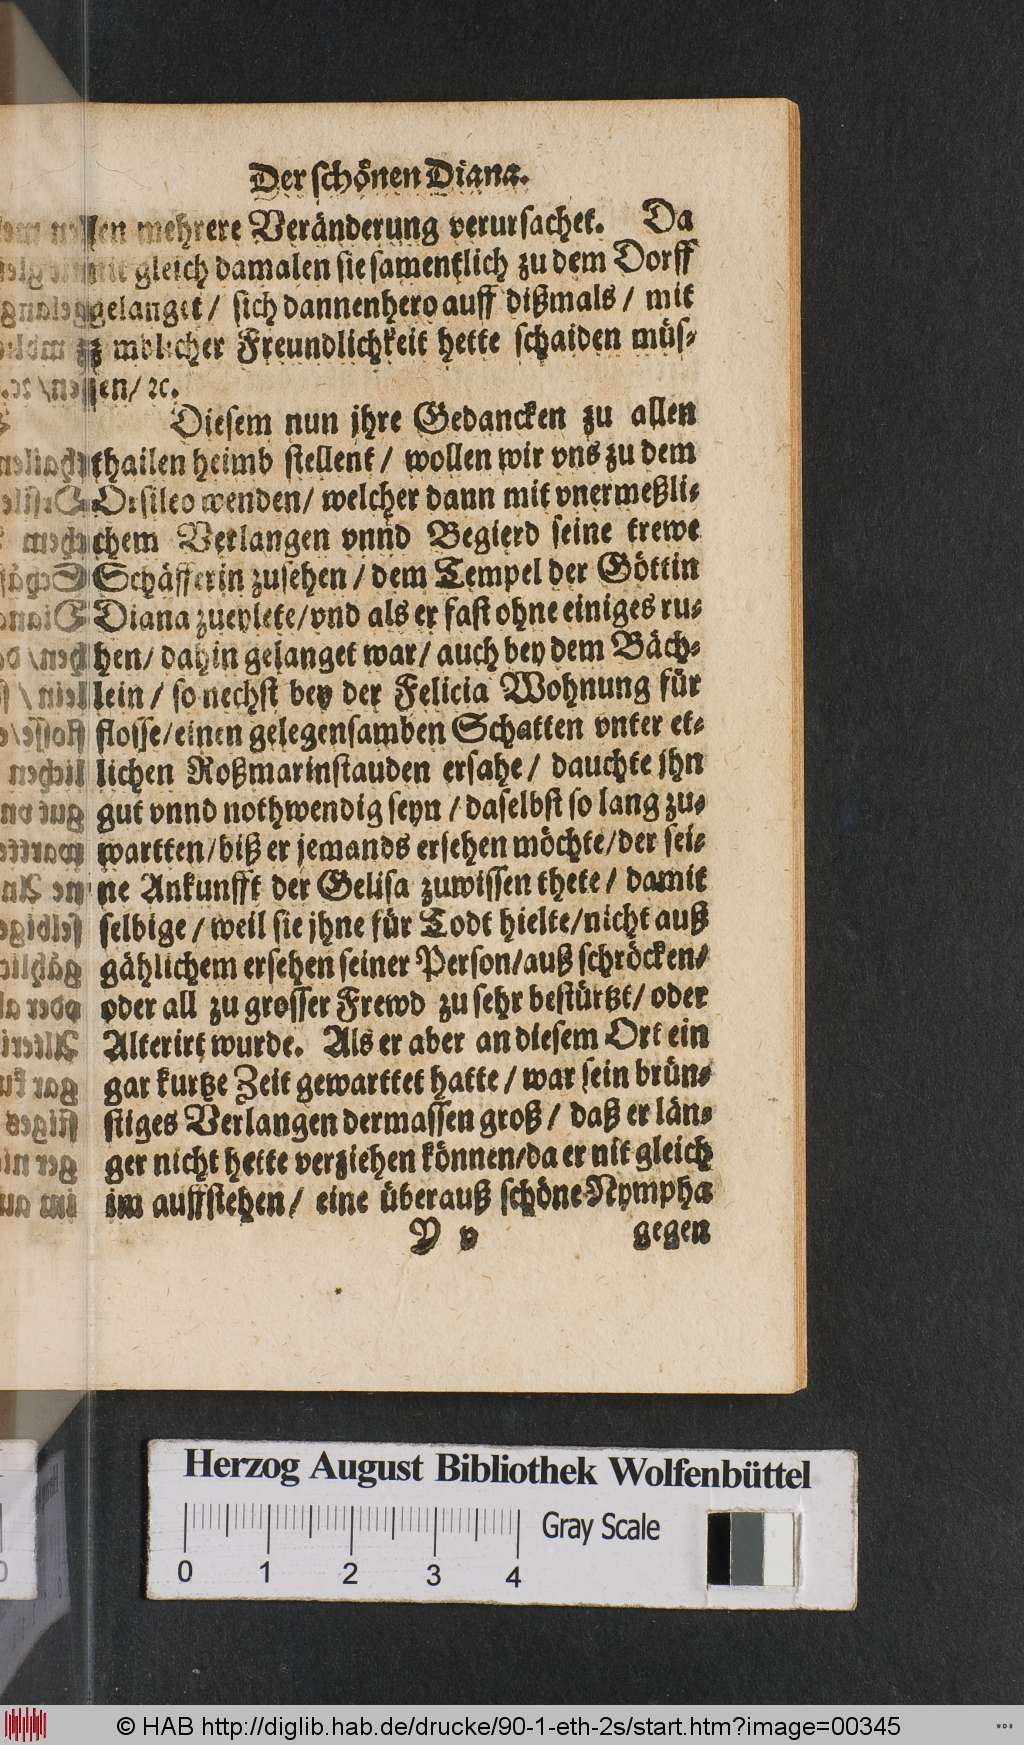 Der schönen Diana.
len mehrere Veränderung verursachet. Da
mit gleich damalen sie samentlich zu dem Dorff
gelanget / sich dannenhero auff dißmals / mit
zimblicher Freundlichkeit hette schaiden müs-
sen / ꝛc.
Diesem nun jhre Gedancken zu allen
thailen heimb stellent / wollen wir vns zu dem
Orsileo wenden / welcher dann mit vnermeßli-
chem Verlangen vnnd Begierd seine trewe
Schäfferin zusehen / dem Tempel der Göttin
Diana zueylete / vnd als er fast ohne einiges ru-
hen / dahin gelanget war / auch bey dem Bäch-
lein / so nechst bey der Felicia Wohnung für
flosse / einen gelegensamben Schatten vnter et-
lichen Roßmarinstauden ersahe / dauchte jhn
gut vnnd nothwendig seyn / daselbst so lang zu-
wartten / biß er jemands ersehen möchte / der sei-
ne Ankunfft der Gelisa zuwissen thete / damit
selbige / weil sie jhne für Todt hielte / nicht auß
gählichem ersehen seiner Person / auß schröcken /
oder all zu grosser Frewd zu sehr bestürtzt / oder
Alterirt wurde. Als er aber an diesem Ort ein
gar kurtze Zeit gewarttet hatte / war sein brün-
stiges Verlangen dermassen groß / daß er län-
ger nicht hette verziehen können / da er nit gleich
im auffstehen / eine überauß schöne Nympha
Y y gegen
Herzog August Bibliothek Wolfenbüttel
0 1 2 3 4 Gray Scale
© HAB http://diglib.hab.de/drucke/90-1-eth-2s/start.htm?image=00345